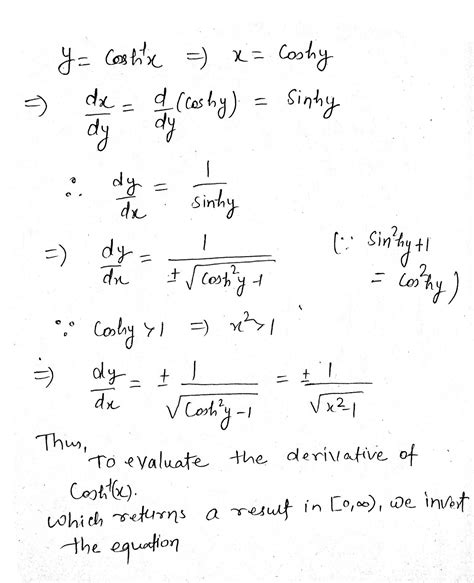 y = cosh⁻¹x ⇒ x = coshy
⇒ dx/dy = d/dy (coshy) = sinhy
∴ dy/dx = 1/sinhy
⇒ dy/dx = 1/±√(cosh²y-1) (∵ sin²hy+1
= cos²hy)
∵ coshy >1 ⇒ x²>1
⇒ dy/dx = ± 1/√(cosh²y-1) = ± 1/√(x²-1)
Thus,
To evaluate the derivative of
Cosh⁻¹(x).
which returns a result in [0,∞), we invert
the equation